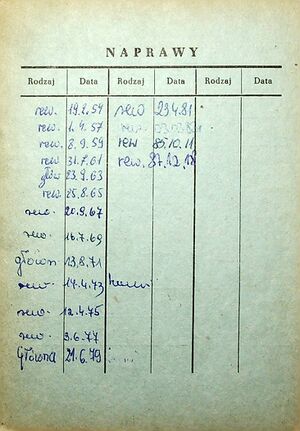 NAPRAWY
Rodzaj Data Rodzaj Data Rodzaj Data
rew. 19.2.54 rew 23.4.81
rew. 1.4.57
rew. 8.9.59 rew 85.10.11
rew. 31.7.61 rew. 87.12.18
głów 23.9.63
rew. 25.8.65
rew. 20.9.67
rew. 16.7.69
główna 13.8.71
rew. 17.4.73
rew. 12.4.75
rew. 3.6.77
Główna 21.6.79